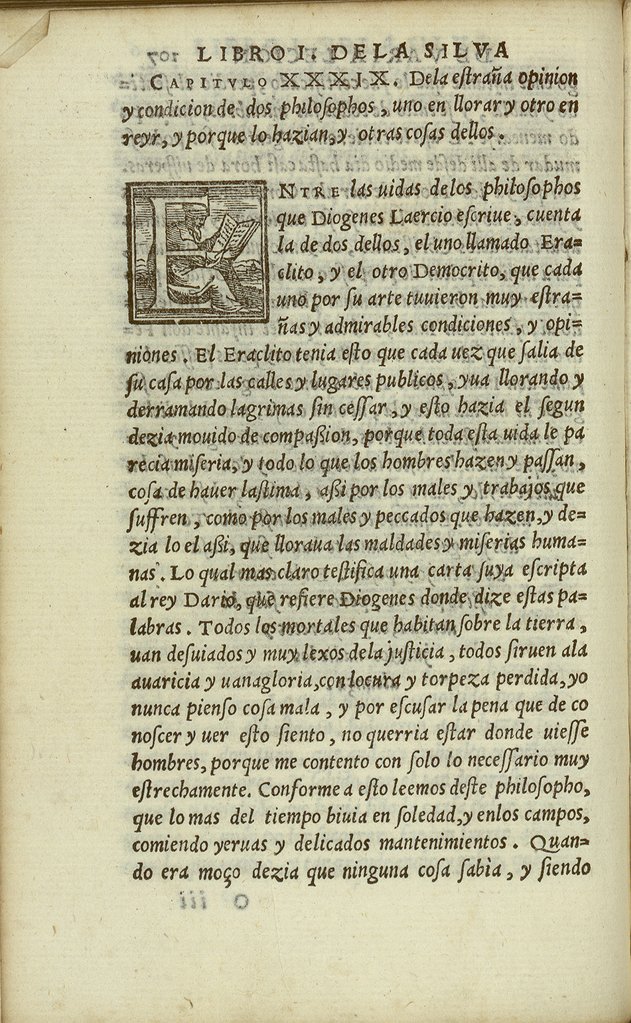 LIBRO I. DE LA SILVA
CAPITVLO XXXIX. De la estraña opinion
y condicion de dos philosophos, uno en llorar y otro en
reyr, y porque lo hazian, y otras cosas dellos.
ENTRE las uidas delos philosophos
que Diogenes Laercio escriue, cuenta
la de dos dellos, el uno llamado Era-
clito, y el otro Democrito, que cada
uno por su arte tuuieron muy estra-
ñas y admirables condiciones, y opi-
niones. El Eraclito tenia esto que cada uez que salia de
su casa por las calles y lugares publicos, yua llorando y
derramando lagrimas sin cessar, y esto hazia el segun
dezia mouido de compaßion, porque toda esta uida le pa
recia miseria, y todo lo que los hombres hazen y passan,
cosa de hauer lastima, aßi por los males y trabajos que
suffren, como por los males y peccados que hazen, y de-
zia lo el aßi, que lloraua las maldades y miserias huma-
nas. Lo qual mas claro testifica una carta suya escripta
al rey Dario, que refiere Diogenes donde dize estas pa-
labras. Todos los mortales que habitan sobre la tierra,
uan desuiados y muy lexos dela justicia, todos siruen ala
auaricia y uanagloria, con locura y torpeza perdida, yo
nunca pienso cosa mala, y por escusar la pena que de co
noscer y uer esto siento, no querria estar donde uiesse
hombres, porque me contento con solo lo necessario muy
estrechamente. Conforme a esto leemos deste philosopho,
que lo mas del tiempo biuia en soledad, y enlos campos,
comiendo yeruas y delicados mantenimientos. Quan-
do era moço dezia que ninguna cosa sabìa, y siendo